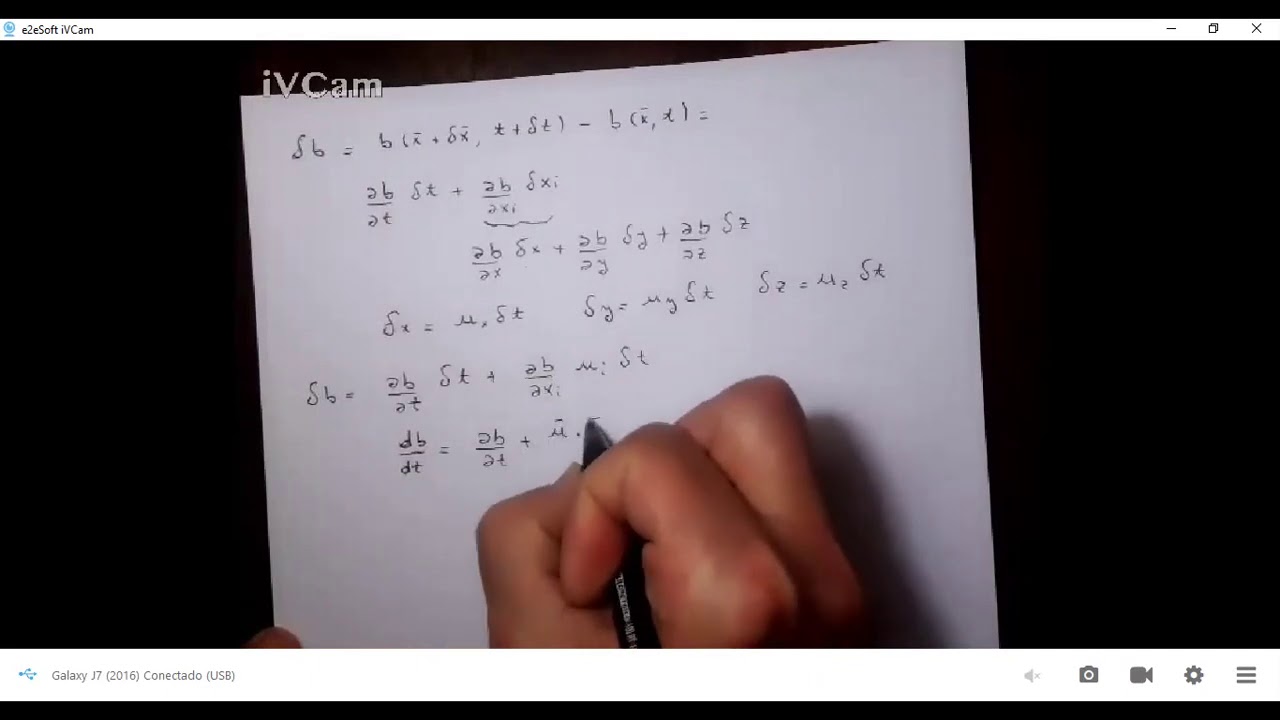 e2eSoft iVCam
iVCam
δb = b(x̄ + δx̄, t + δt) - b(x̄, t) =
∂b/∂t δt + ∂b/∂xi δxi
∂b/∂x δx + ∂b/∂y δy + ∂b/∂z δz
δx = uₓ δt δy = u_y δt δz = u_z δt
δb = ∂b/∂t δt + ∂b/∂xi ui δt
db/dt = ∂b/∂t + ū ·
Galaxy J7 (2016) Conectado (USB)